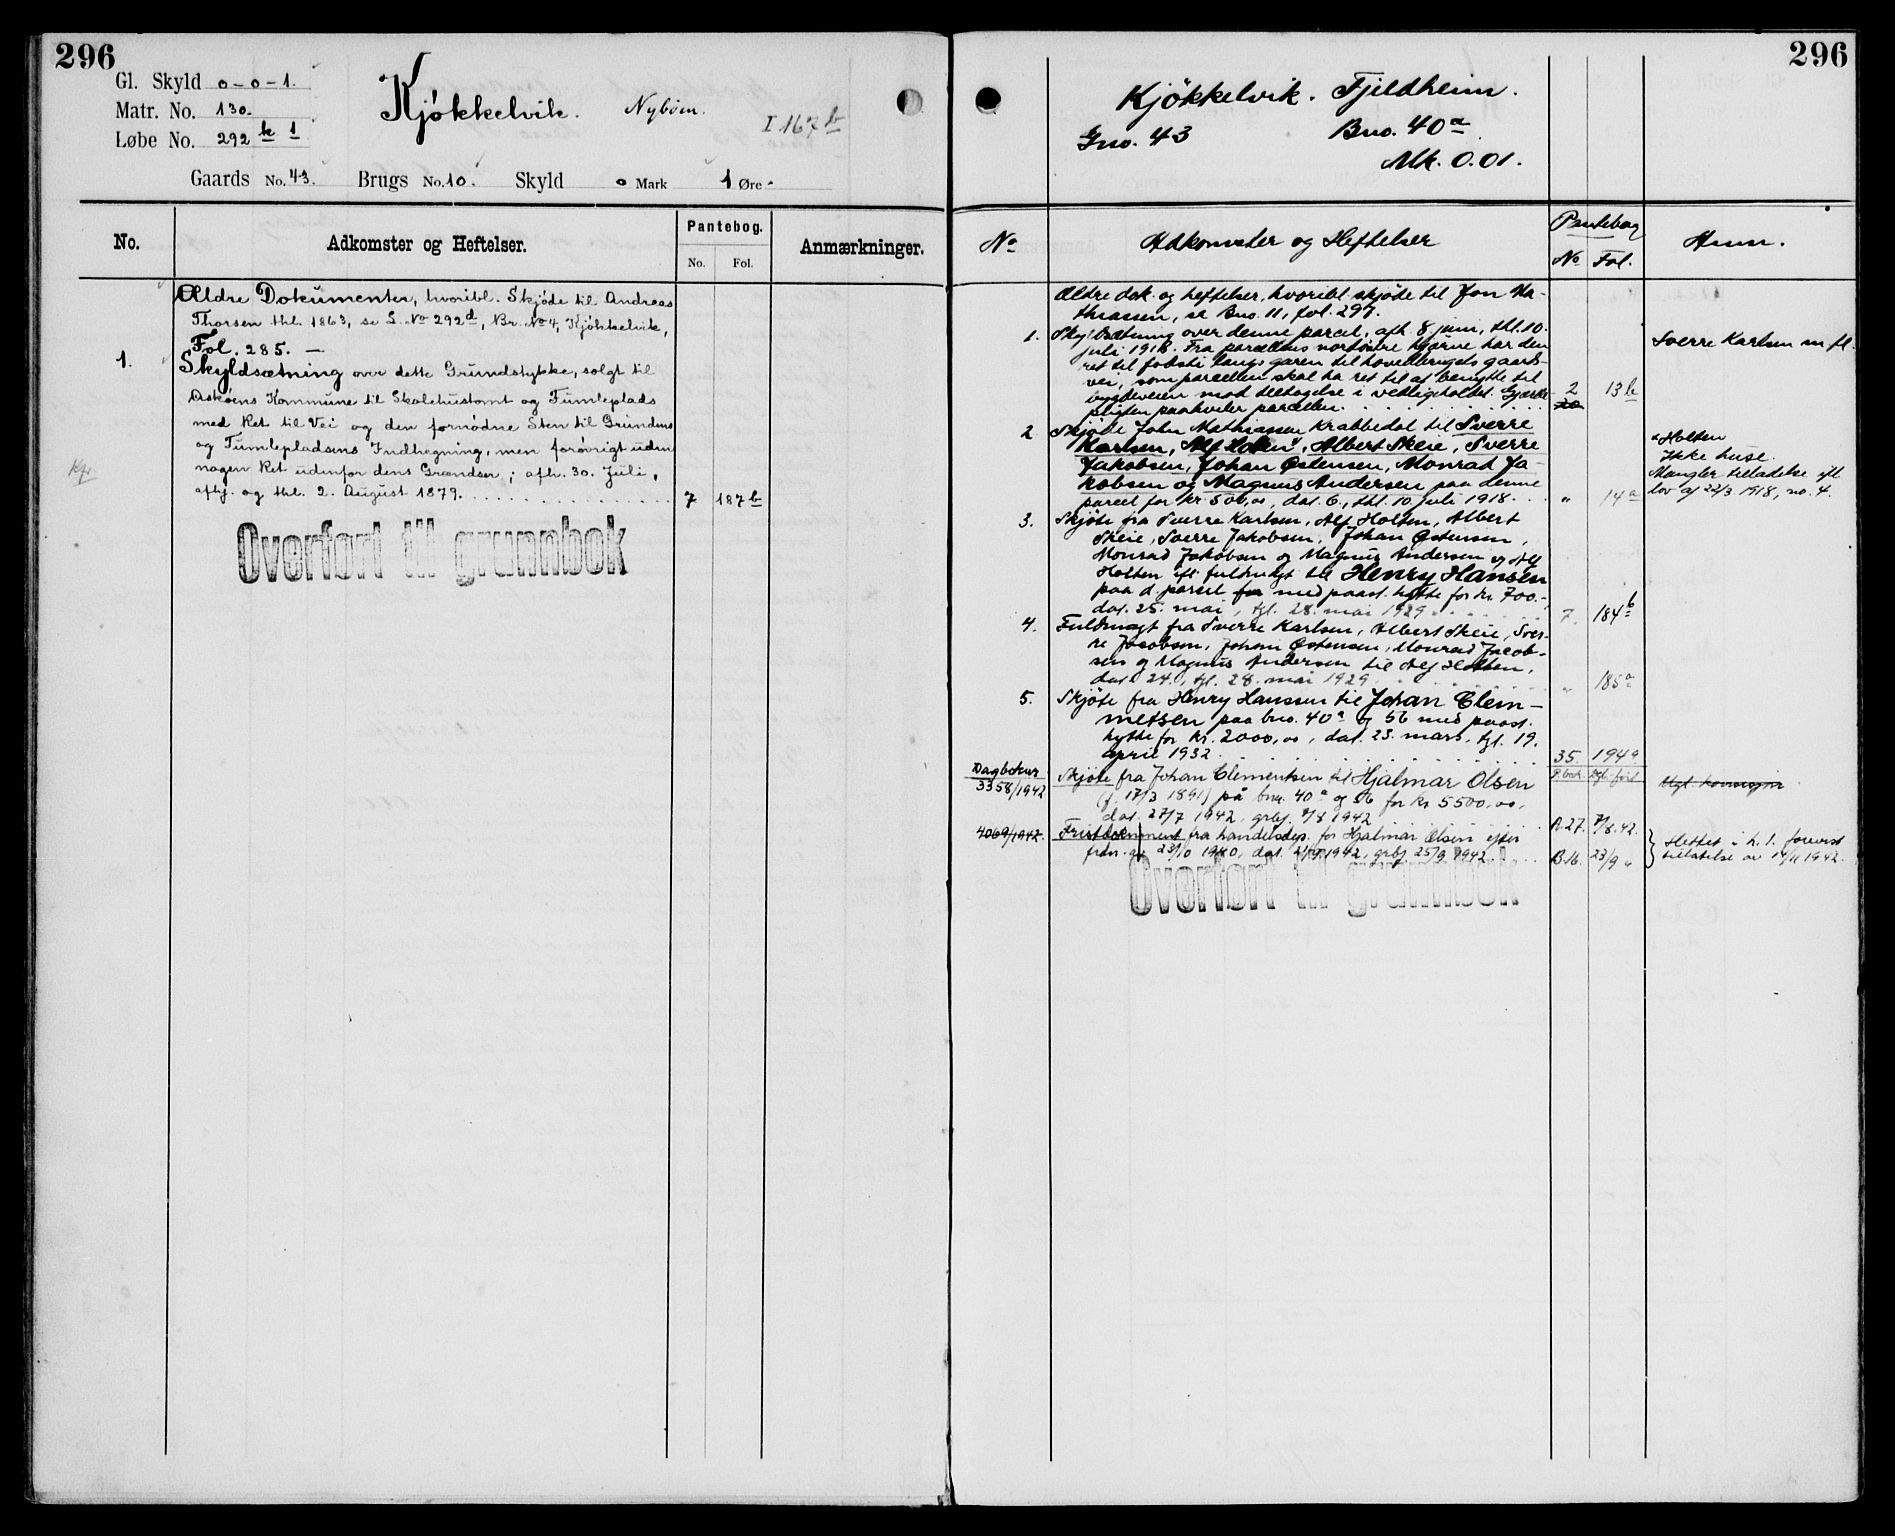 296
Gl. Skyld 0-0-1.
Matr. No. 130.
Løbe No. 292 k 1
Kjøkkelvik. Nybøm.
I 167 b
Gaards No. 43. Brugs No. 10. Skyld 0 Mark 1 Øre.
No. Adkomster og Heftelser. Pantebog. Anmærkninger.
No. Fol.
Ældre Dokumenter, hvoribl. Skjøde til Andreas
Thorsen thl. 1863, se L. No 292d, Br. No 4, Kjøkkelvik,
Fol. 285. —
1. Skyldsætning over dette Grundstykke, solgt til
Askøens Kommune til Skolehustomt og Tumleplads
med Ret til Vei og den fornødne Sten til Grunden
og Tumlepladsens Indhegning, men forøvrigt uden
nogen Ret udenfor dens Grændser; afh. 30. Juli,
afhj. og thl. 2. August 1879. 7 187 b
Overført til grunnbok
296
Kjøkkelvik. Fjeldheim.
Gno. 43 Bno. 40a
Mk. 0.01.
No Adkomster og Heftelser Pantebog Anm.
No Fol.
Ældre dok. og heftelser, hvoribl. skjøde til Jon Ma-
thiassen, se Bno. 11, fol. 297.
1. Skyldsætning over denne parcel, afh. 8 juni, thl. 10. Sverre Karlsen m fl.
juli 1918. Fra parcellens nordøstre hjørne har den
ret til fodsti langs garen til hovedbrugets gaards-
vei, som parcellen skal ha ret til at benytte til
bygdeveien mod deltagelse i vedligeholdet. Gjærde-
pligten paahviler parcellen. 2 13 b
20
2 Skjøde John Mathiassen Krabbedal til Sverre
Karlsen, Alf Holen x, Albert Skeie, Sverre x Holten
Jakobsen, Johan Østensen, Monrad Ja- Ikke huse.
kobsen og Magnus Andersen paa denne Mangler tilladelse efl
parcel for kr. 500,00, dat. 6., thl. 10 juli 1918. " 14 a lov af 22/3 1918, no. 4.
3. Skjøte fra Sverre Karlsen, Alf Holten, Albert
Skeie, Sverre Jakobsen, Johan Østensen,
Monrad Jakobsen og Magnus Andersen og Alf
Holten efl. fuldmagt til Henry Hansen
paa d. parcel for med paast. hytte for kr. 700.-,
dat. 25. mai, tgl. 28. mai 1929 7. 184 b
4. Fuldmagt fra Sverre Karlsen, Albert Skeie, Sver-
re Jacobsen, Johan Østensen, Monrad Jacob-
sen og Magnus Andersen til Alf Holten,
dat. 24., tgl. 28. mai 1929 " 185 a
5. Skjøte fra Henry Hanssen til Johan Clem-
metsen paa bno. 40a og 56 med paast.
hytte for kr. 2000,00, dat. 23. mars, tgl. 19.
april 1932. 35. 194 a
Dagboknr P. bok. Dgb. ført
3358/1942 Skjøte fra Johan Clementsen til Hjalmar Olsen
(f. 17/3 1891) på bnr. 40a og 56 for kr 5500,00,
dat. 27/7 1942, grbf. 7/8 1942 A.27. 7/8.42.
4069/1942. Fristdokument fra handelsdep. for Hjalmar Olsen efter
frdn. av 23/10 1940, dat. 21/9 1942, grbf 25/9 1942 B.16. 23/9 "
Slettet i h. t. forevist
tillatelse av 14/11 1942.
Overført til grunnbok